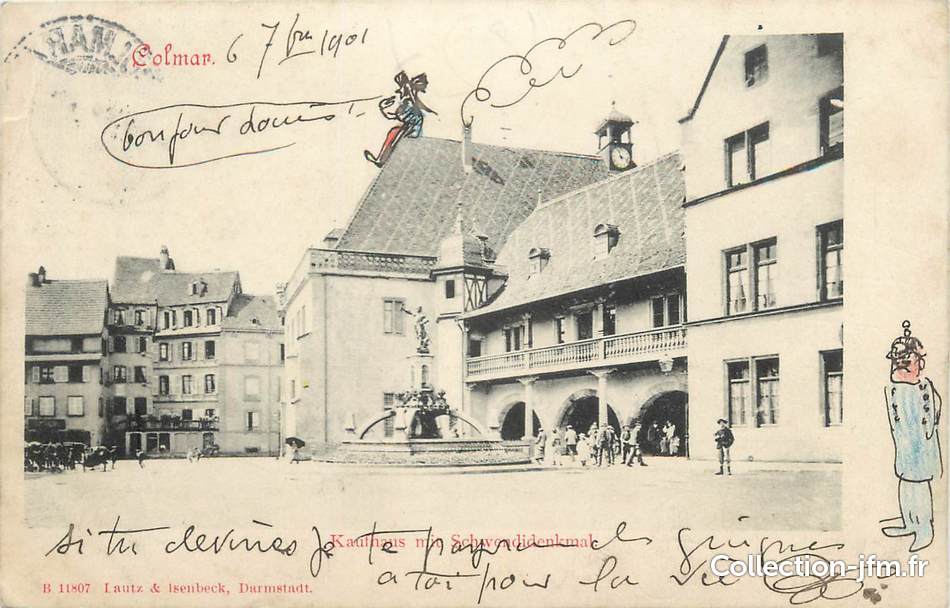 HAM
Colmar. 6 7bre 1901
bonjour Louis !
Kaufhaus mit Schwendidenkmal.
si tu devines je te payerai des guignes
a toi pour la vie
B 11807 Lautz & Isenbeck, Darmstadt.
Collection-jfm.fr